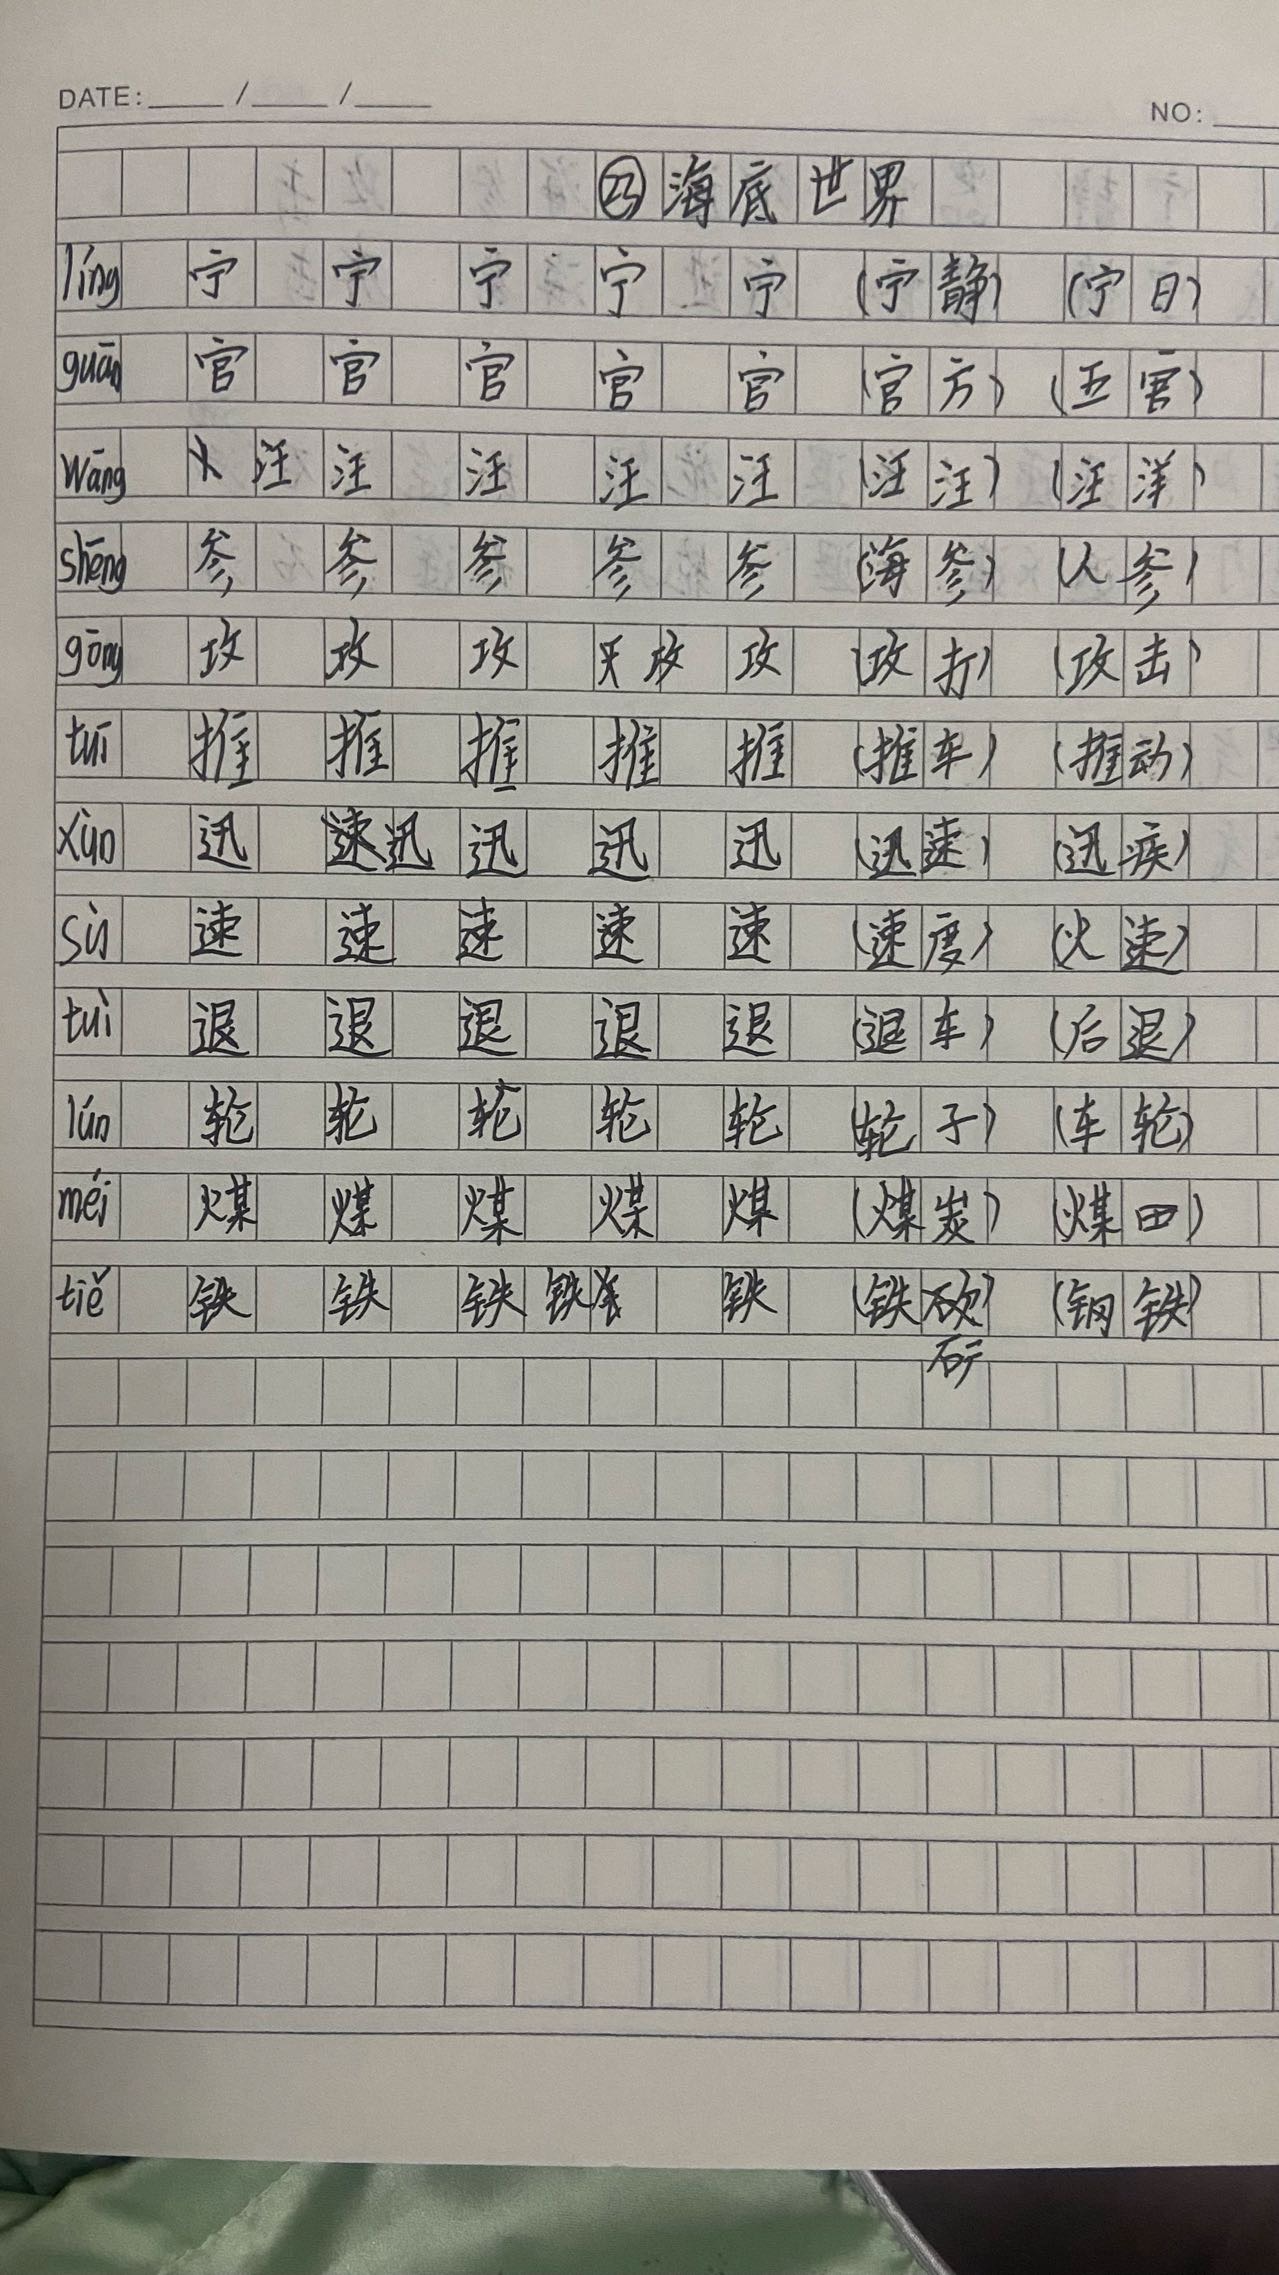 DATE: / /
NO:
㉓ 海底世界
líng 宁 宁 宁 宁 宁 (宁静) (宁日)
guān 官 官 官 官 官 (官方) (五官)
wāng 汪 汪 汪 汪 汪 (汪汪) (汪洋)
shēng 参 参 参 参 参 (海参) (人参)
gōng 攻 攻 攻 攻 攻 (攻打) (攻击)
tuī 推 推 推 推 推 (推车) (推动)
xùn 迅 速 迅 迅 迅 迅 (迅速) (迅疾)
sù 速 速 速 速 速 (速度) (火速)
tuì 退 退 退 退 退 (退车) (后退)
lún 轮 轮 轮 轮 轮 (轮子) (车轮)
méi 煤 煤 煤 煤 煤 (煤炭) (煤田)
tiě 铁 铁 铁 铁 铁 (铁砍) (钢铁)